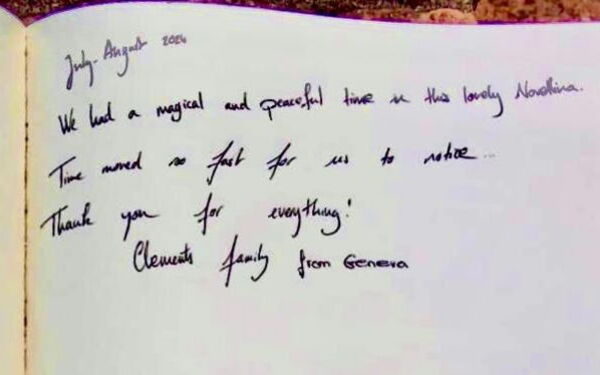 July-August 2024
We had a magical and peaceful time in this lovely Novellina.
Time moved so fast for us to notice...
Thank you for everything!
Clements family from Geneva